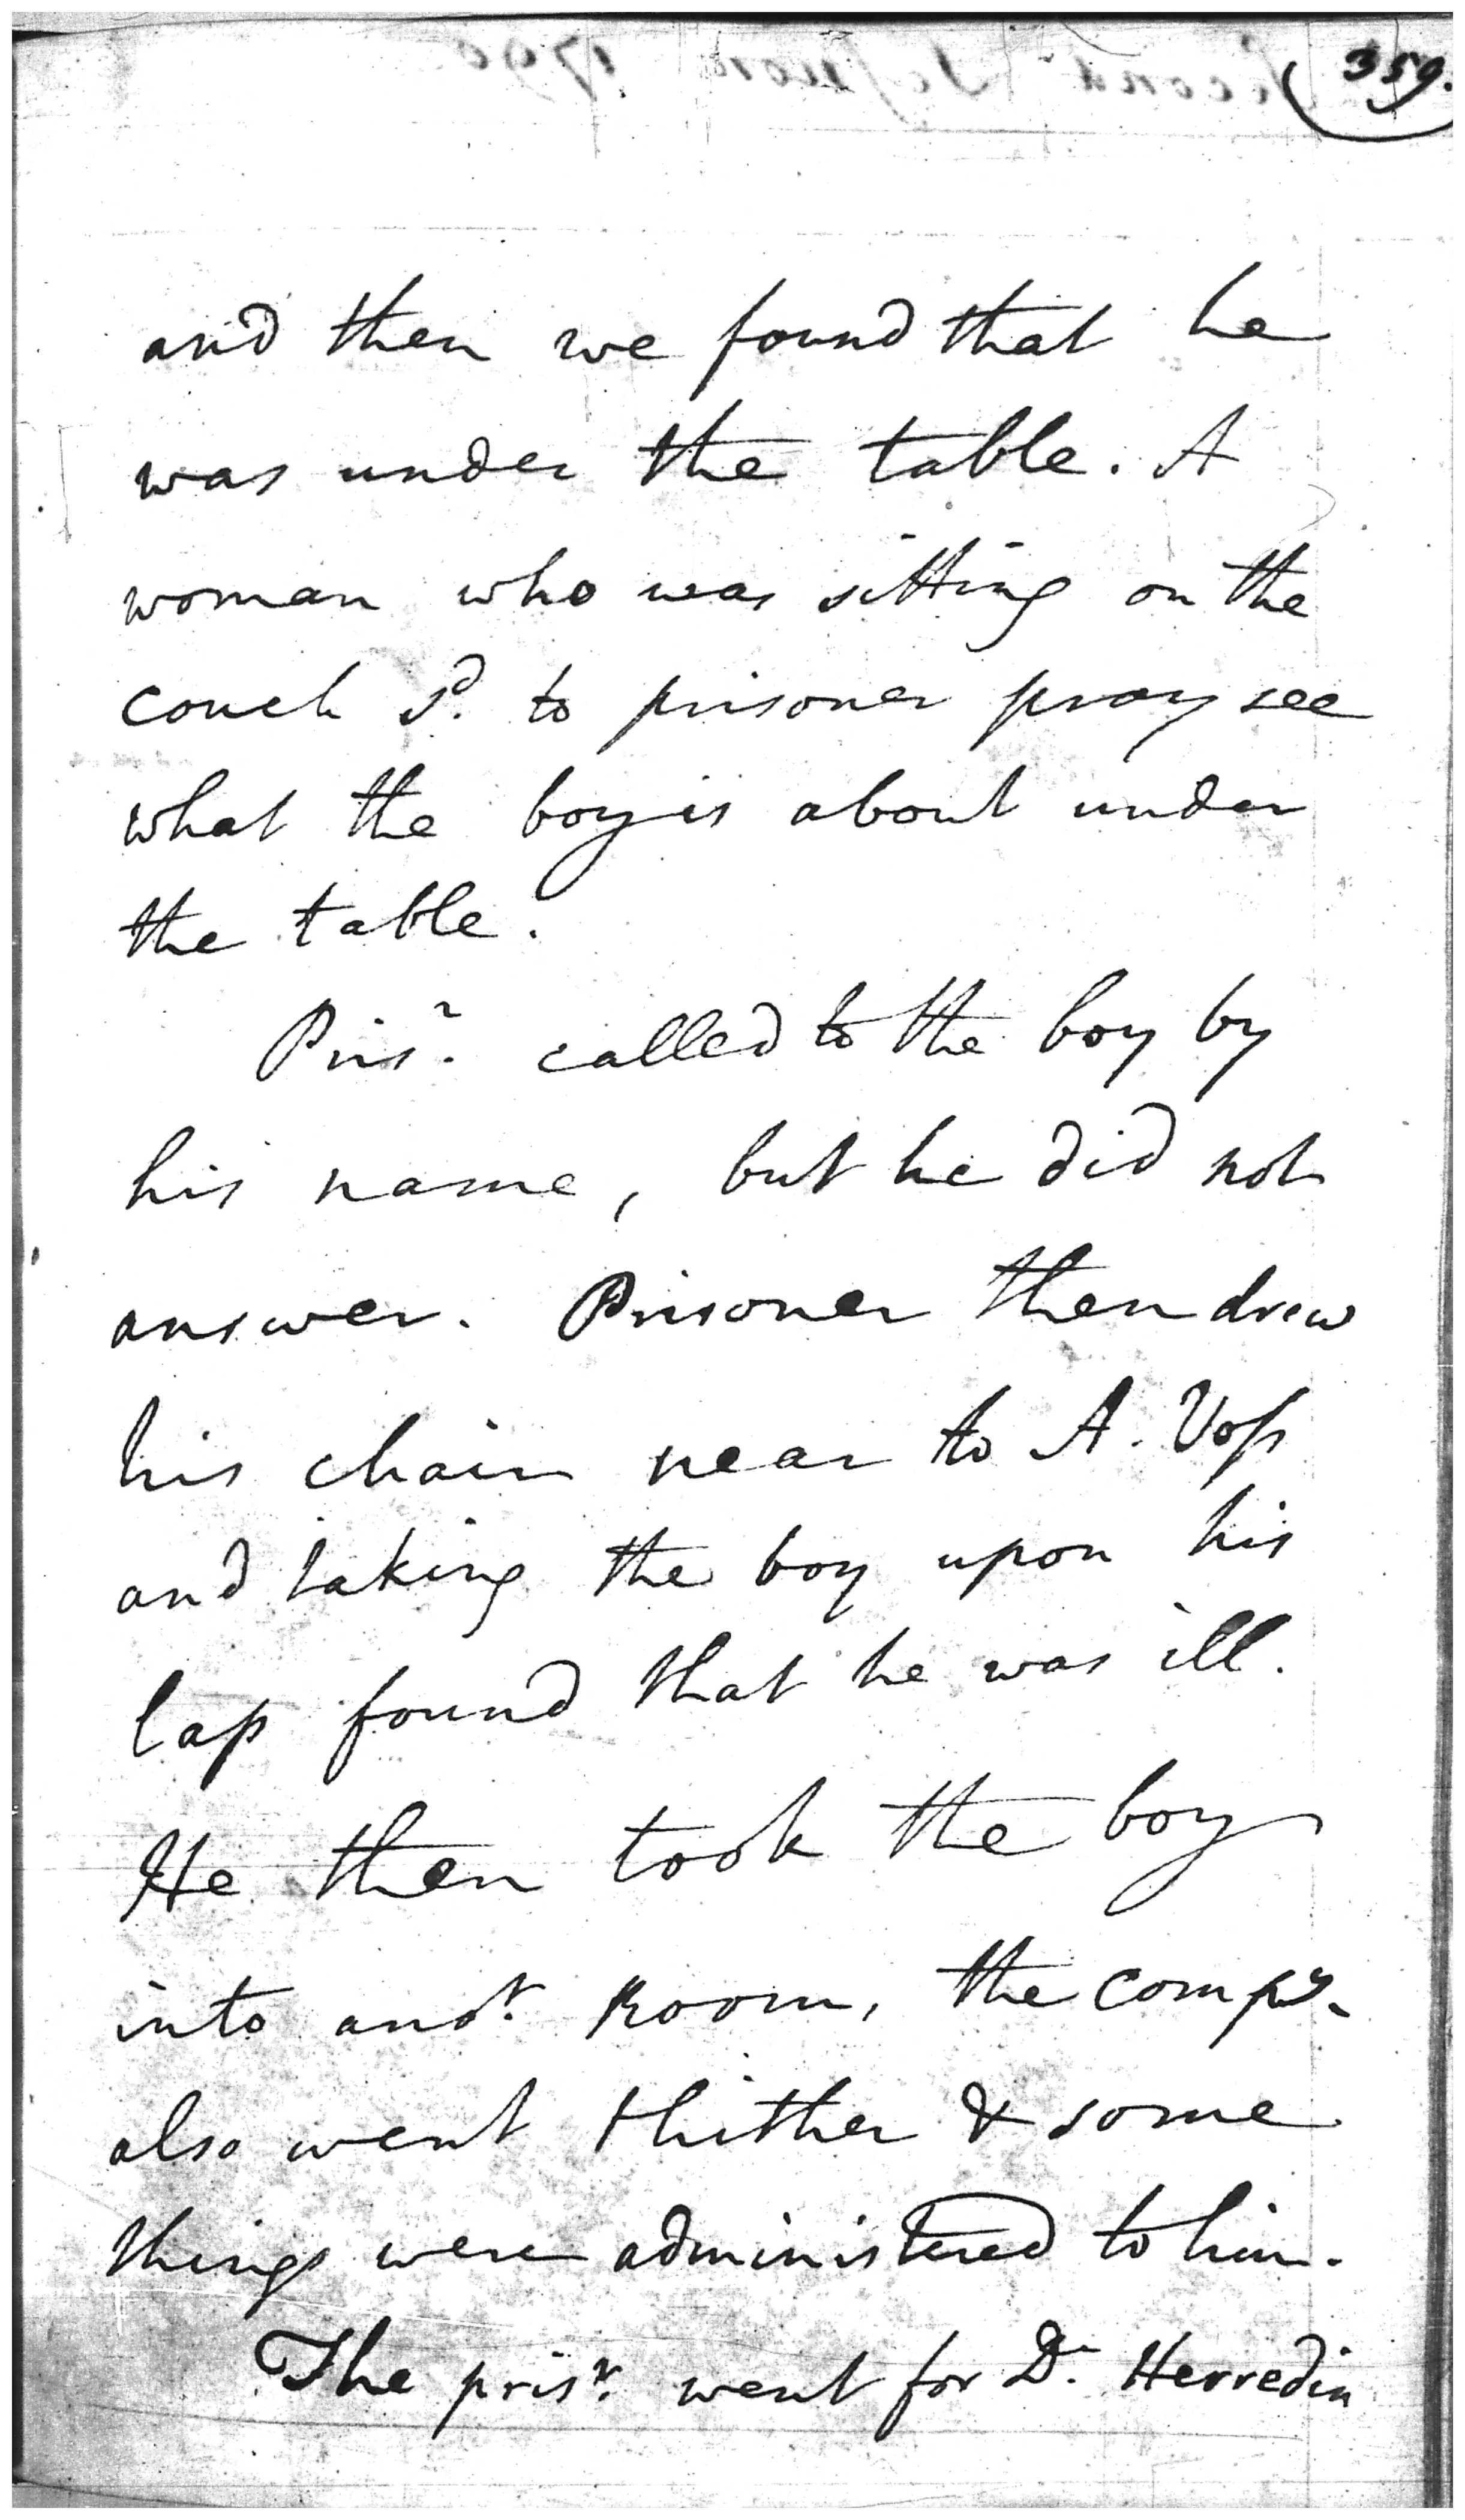 359.
and then we found that he
was under the table. A
woman who was sitting on the
couch sd. to prisoner pray see
what the boy is about under
the table.
Prisr. called to the boy by
his name, but he did not
answer. Prisoner then drew
his chair near to A. Voss
and taking the boy upon his
lap found that he was ill.
He then took the boy
into anor. Room, the compy.
also went thither & some
things were administered to him.
The prisr. went for Dr. Herredin